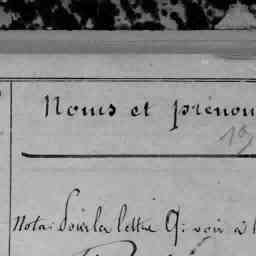 Noms et prénom
19
Nota: Pour la lettre Q: voir à l